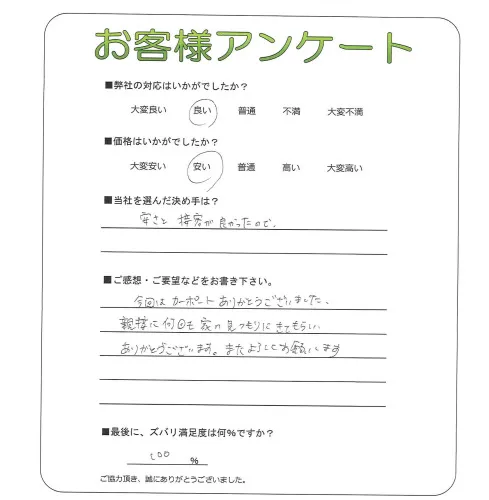 お客様アンケート
■弊社の対応はいかがでしたか？
大変良い 良い 普通 不満 大変不満
■価格はいかがでしたか？
大変安い 安い 普通 高い 大変高い
■当社を選んだ決め手は？
安さと 接客が良かったので、
■ご感想・ご要望などをお書き下さい。
今回は カーポート ありがとうございました、
親接に 何回も 家の 見つもりに きてもらい
ありがとうございます。またよろしくお願いします
■最後に、ズバリ満足度は何％ですか？
100 ％
ご協力頂き、誠にありがとうございました。